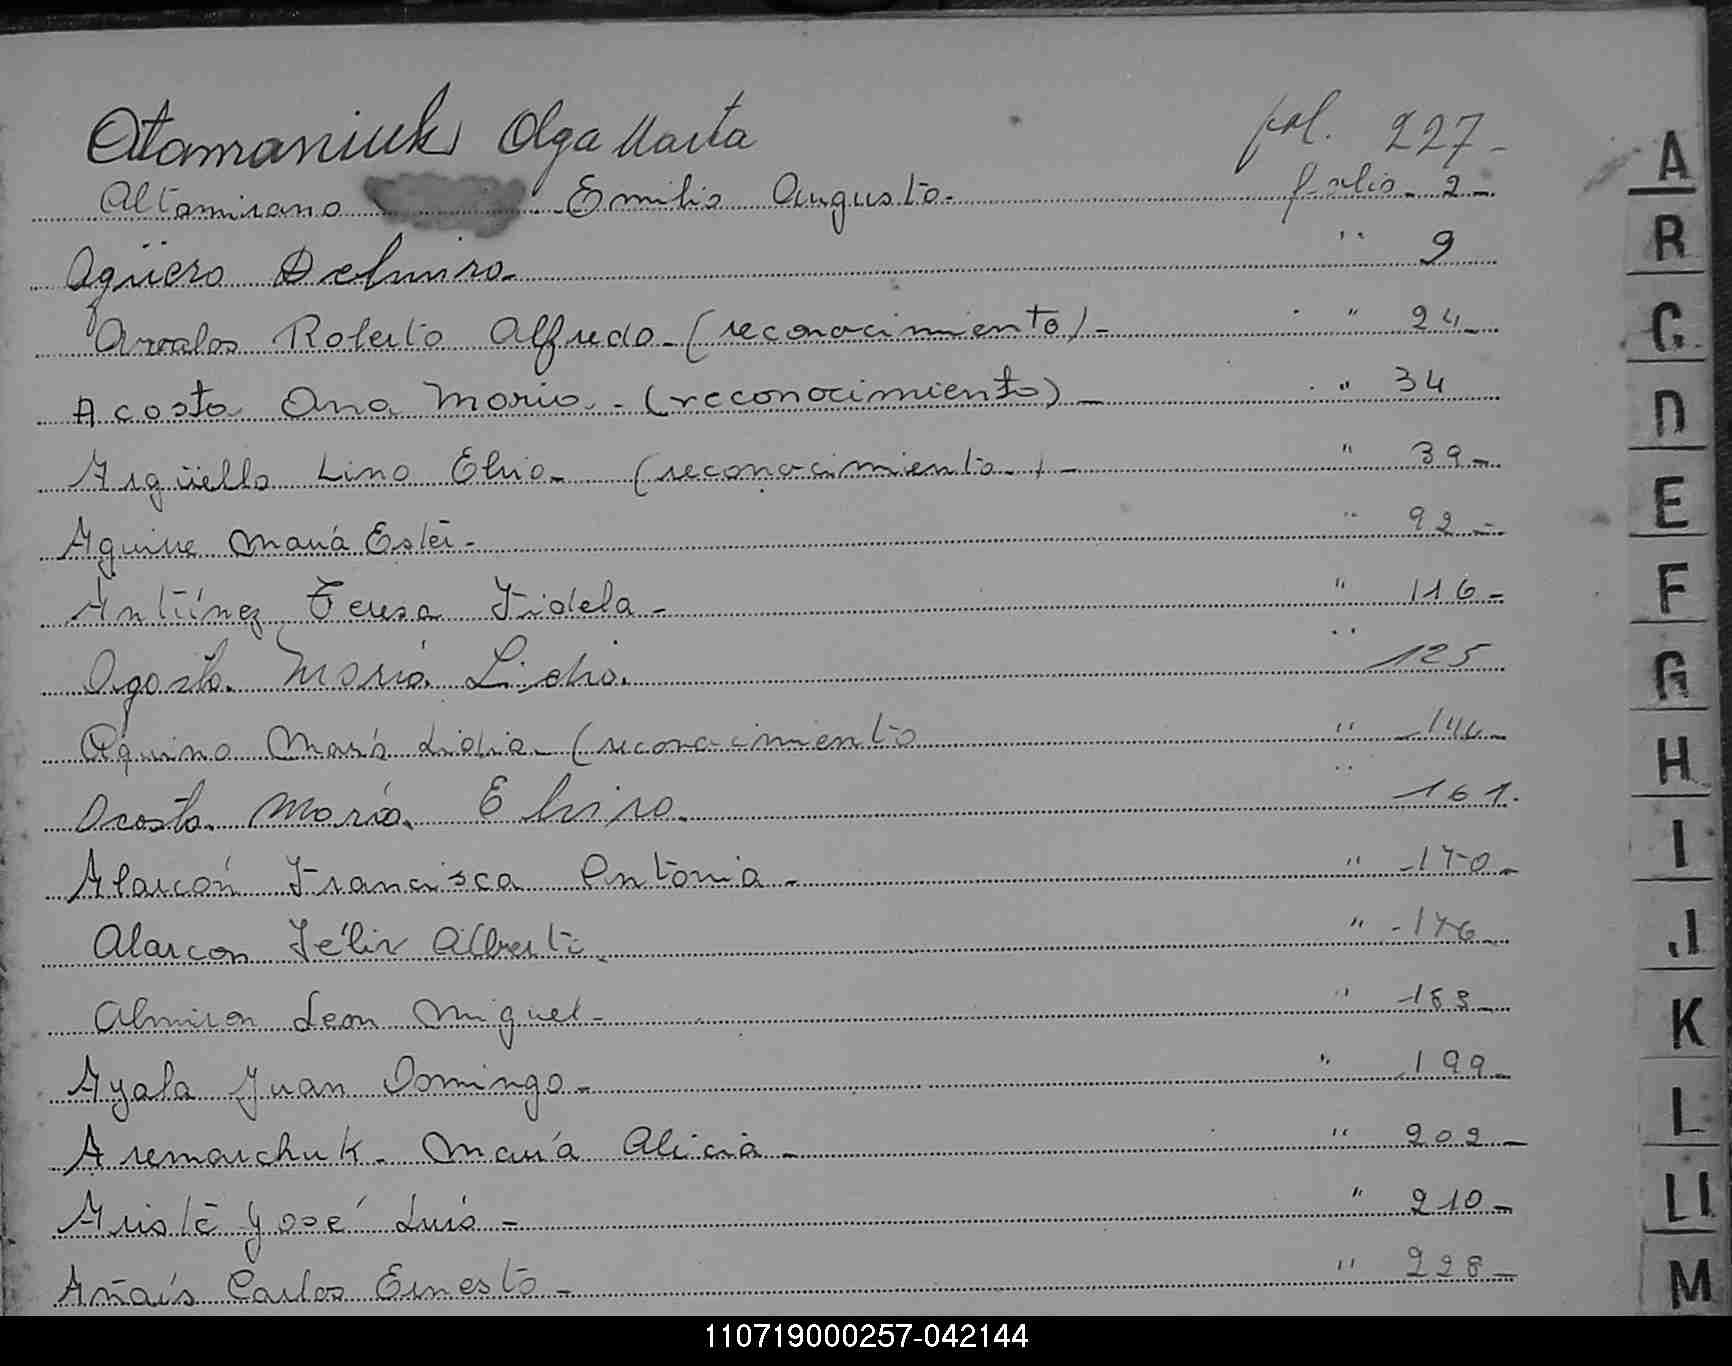 Atamaniuk Olga Marta fol. 227-
Altamirano Emilio Augusto- folio- 2-
Agüero Delmiro- " 9
Avalos Roberto Alfredo-(reconocimiento)- " 24-
Acosta Ana Maria-(reconocimiento)- " 34
Argüello Lino Elvio- (reconocimiento-)- " 39-
Aguirre María Ester- " 92-
Antúnez Teresa Fidela- " 116-
Agosto María Lidia. " 125
Aquino María Lidia-(reconocimiento " 144-
Acosta María Elvira. " 161.
Alarcón Francisca Antonia- " -170-
Alarcon Félix Alberto " -176-
Almiron Leon Miguel- " -188-
Ayala Juan Domingo- " 199-
Aremarchuk- María Alicia- " 202-
Aristé José Luis- " 210-
Añais Carlos Ernesto- " 228-
A
B
C
D
E
F
G
H
I
J
K
L
Ll
M
110719000257-042144